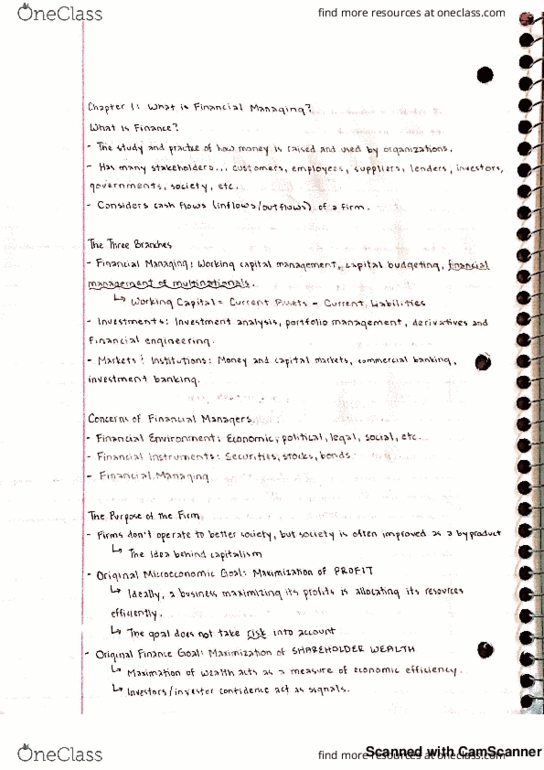 OneClass
find more resources at oneclass.com
Chapter 1: What is Financial Managing?
What is Finance?
- The study and practice of how money is raised and used by organizations.
- Has many stakeholders... customers, employees, suppliers, lenders, investors,
governments, society, etc.
- Considers cash flows (inflows/outflows) of a firm.
The Three Branches
- Financial Managing: Working capital management, capital budgeting, financial
management of multinationals.
↳ Working Capital = Current Assets - Current Liabilities
- Investments: Investment analysis, portfolio management, derivatives and
financial engineering.
- Markets & Institutions: Money and capital markets, commercial banking,
investment banking.
Concerns of Financial Managers
- Financial Environment: Economic, political, legal, social, etc...
- Financial Instruments: Securities, stocks, bonds
- Financial Managing
The Purpose of the Firm
- Firms don't operate to better society, but society is often improved as a byproduct
↳ The idea behind capitalism
- Original Microeconomic Goal: Maximization of PROFIT
↳ Ideally, a business maximizing its profits is allocating its resources
efficiently.
↳ The goal does not take risk into account
- Original Finance Goal: Maximization of SHAREHOLDER WEALTH
↳ Maximation of wealth acts as a measure of economic efficiency.
↳ Investors/investor confidence act as signals.
OneClass
find more resources at oneclass.com
Scanned with CamScanner